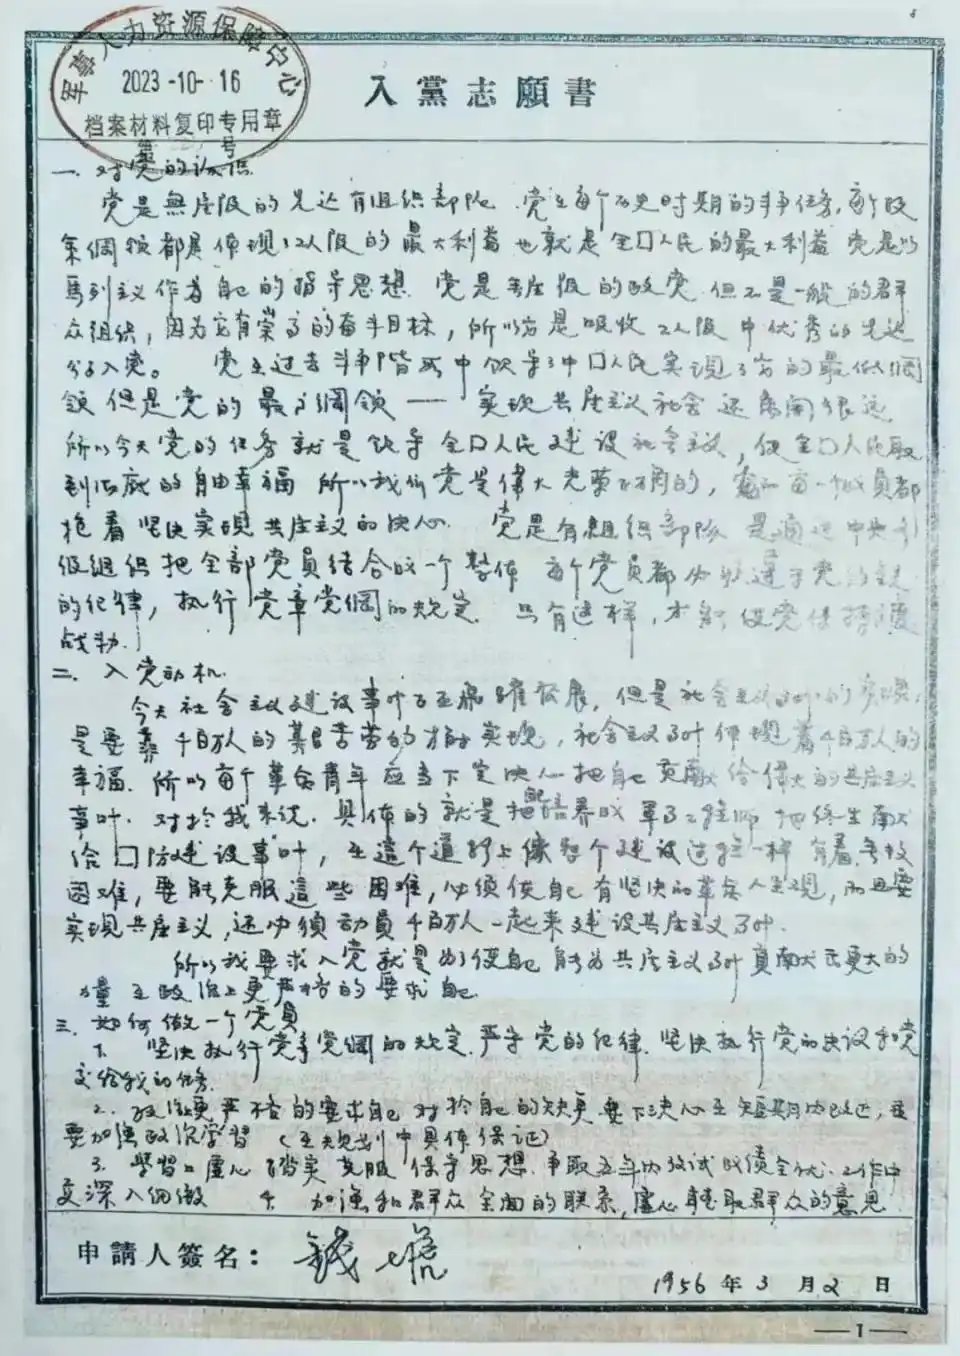 军尊人力资源保障中心
2023-10-16
档案材料复印专用章
第 号
入黨志願書
一、对党的认识
党是無产阶级的先进有组织部队 党在每个历史时期的斗争任务，每个政
策綱領都是体现了人民的最大利益 也就是全国人民的最大利益 党是以
馬列主义作为自己的指导思想 党是無产阶级的政党 但不是一般的群
众组织，因为它有崇高的奋斗目标，所以它是吸收工人阶级中优秀的先进
分子入党。 党在过去斗争阶段中领导了中国人民实现了党的最低綱
领 但是党的最高綱领 —— 实现共产主义社会 还距離很远
所以今天党的任务就是领导全国人民建设社会主义，使全国人民取
到彻底的自由幸福 所以我们党是偉大光荣正确的， 每一个党员都
抱着坚决实现共产主义的决心 党是有组织部队 是通过中央引
级组织把全部党员结合成一个整体 每个党员都必须遵守党的
的纪律，执行党章党綱的规定 只有这样，才能使党保持
战斗力.
二、入党动机.
今天社会主义建设事业正在飛躍发展，但是社会主义事业的实现，
是要靠千百万人的艱苦劳动才能实现，社会主义事业体现着千百万人的
幸福. 所以每个革命青年应当下定决心把自己贡献给偉大的共产主义
事业. 对於我来说，具体的就是把自己培养成軍事工程师 把终生献
给国防建设事业，在這个道路上像整个建设过程一样 有着考验
困难，要能克服這些困难，必须使自己有坚决的革命人生观，而且要
实现共产主义，还必须动員千百万人一起来建设共产主义事业.
所以我要求入党就是为了使自己能为共产主义事业貢献出更大的
力量 在政治上更严格的要求自己
三、如何做一个党員
1. 坚决执行党章党綱的规定，严守党的纪律. 坚决执行党的决议和党
交给我的任务.
2. 政治更严格的要求自己 对於自己的缺点 要下决心在短期内改正，并
要加强政治学習 （在规划中具体保证）
3. 學習上虚心 踏实 克服 保守思想. 争取五年内考试成绩全优. 工作中
要深入细緻 4. 加强和群众全面的联系，虚心聽取群众的意見
申請人簽名：
1956 年 3 月 2 日
—1—